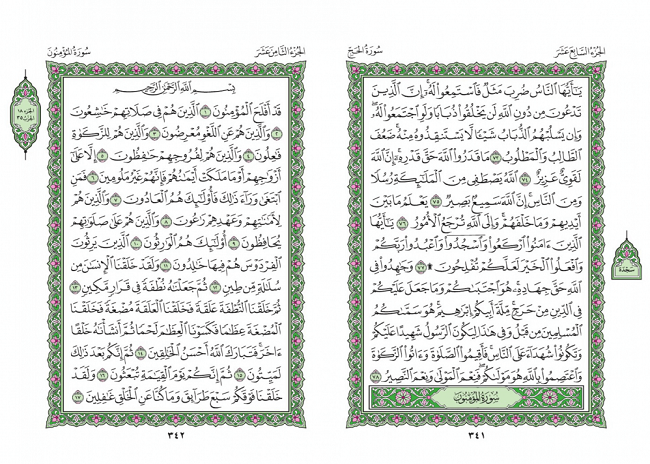 الجزء السابع عشر
سورة الحج
يَٰٓأَيُّهَا ٱلنَّاسُ ضُرِبَ مَثَلٌ فَٱسْتَمِعُوا۟ لَهُۥٓ إِنَّ ٱلَّذِينَ
تَدْعُونَ مِن دُونِ ٱللَّهِ لَن يَخْلُقُوا۟ ذُبَابًا وَلَوِ ٱجْتَمَعُوا۟ لَهُۥ
وَإِن يَسْلُبْهُمُ ٱلذُّبَابُ شَيْـًٔا لَّا يَسْتَنقِذُوهُ مِنْهُ ضَعُفَ
ٱلطَّالِبُ وَٱلْمَطْلُوبُ ٧٣ مَا قَدَرُوا۟ ٱللَّهَ حَقَّ قَدْرِهِۦٓ إِنَّ ٱللَّهَ
لَقَوِىٌّ عَزِيزٌ ٧٤ ٱللَّهُ يَصْطَفِى مِنَ ٱلْمَلَٰٓئِكَةِ رُسُلًا
وَمِنَ ٱلنَّاسِ إِنَّ ٱللَّهَ سَمِيعٌۢ بَصِيرٌ ٧٥ يَعْلَمُ مَا بَيْنَ
أَيْدِيهِمْ وَمَا خَلْفَهُمْ وَإِلَى ٱللَّهِ تُرْجَعُ ٱلْأُمُورُ ٧٦ يَٰٓأَيُّهَا
ٱلَّذِينَ ءَامَنُوا۟ ٱرْكَعُوا۟ وَٱسْجُدُوا۟ وَٱعْبُدُوا۟ رَبَّكُمْ
وَٱفْعَلُوا۟ ٱلْخَيْرَ لَعَلَّكُمْ تُفْلِحُونَ ۩ ٧٧ وَجَٰهِدُوا۟ فِى
ٱللَّهِ حَقَّ جِهَادِهِۦ هُوَ ٱجْتَبَىٰكُمْ وَمَا جَعَلَ عَلَيْكُمْ
فِى ٱلدِّينِ مِنْ حَرَجٍ مِّلَّةَ أَبِيكُمْ إِبْرَٰهِيمَ هُوَ سَمَّىٰكُمُ
ٱلْمُسْلِمِينَ مِن قَبْلُ وَفِى هَٰذَا لِيَكُونَ ٱلرَّسُولُ شَهِيدًا عَلَيْكُمْ
وَتَكُونُوا۟ شُهَدَآءَ عَلَى ٱلنَّاسِ فَأَقِيمُوا۟ ٱلصَّلَوٰةَ وَءَاتُوا۟ ٱلزَّكَوٰةَ
وَٱعْتَصِمُوا۟ بِٱللَّهِ هُوَ مَوْلَىٰكُمْ فَنِعْمَ ٱلْمَوْلَىٰ وَنِعْمَ ٱلنَّصِيرُ ٧٨
سورة المؤمنون
سجدة
٣٤١
الجزء الثامن عشر
سورة المؤمنون
بِسْمِ ٱللَّهِ ٱلرَّحْمَٰنِ ٱلرَّحِيمِ
قَدْ أَفْلَحَ ٱلْمُؤْمِنُونَ ١ ٱلَّذِينَ هُمْ فِى صَلَاتِهِمْ خَٰشِعُونَ
٢ وَٱلَّذِينَ هُمْ عَنِ ٱللَّغْوِ مُعْرِضُونَ ٣ وَٱلَّذِينَ هُمْ لِلزَّكَوٰةِ
فَٰعِلُونَ ٤ وَٱلَّذِينَ هُمْ لِفُرُوجِهِمْ حَٰفِظُونَ ٥ إِلَّا عَلَىٰٓ
أَزْوَٰجِهِمْ أَوْ مَا مَلَكَتْ أَيْمَٰنُهُمْ فَإِنَّهُمْ غَيْرُ مَلُومِينَ ٦ فَمَنِ
ٱبْتَغَىٰ وَرَآءَ ذَٰلِكَ فَأُو۟لَٰٓئِكَ هُمُ ٱلْعَادُونَ ٧ وَٱلَّذِينَ هُمْ
لِأَمَٰنَٰتِهِمْ وَعَهْدِهِمْ رَٰعُونَ ٨ وَٱلَّذِينَ هُمْ عَلَىٰ صَلَوَٰتِهِمْ
يُحَافِظُونَ ٩ أُو۟لَٰٓئِكَ هُمُ ٱلْوَٰرِثُونَ ١٠ ٱلَّذِينَ يَرِثُونَ
ٱلْفِرْدَوْسَ هُمْ فِيهَا خَٰلِدُونَ ١١ وَلَقَدْ خَلَقْنَا ٱلْإِنسَٰنَ مِن
سُلَٰلَةٍ مِّن طِينٍ ١٢ ثُمَّ جَعَلْنَٰهُ نُطْفَةً فِى قَرَارٍ مَّكِينٍ ١٣
ثُمَّ خَلَقْنَا ٱلنُّطْفَةَ عَلَقَةً فَخَلَقْنَا ٱلْعَلَقَةَ مُضْغَةً فَخَلَقْنَا
ٱلْمُضْغَةَ عِظَٰمًا فَكَسَوْنَا ٱلْعِظَٰمَ لَحْمًا ثُمَّ أَنشَأْنَٰهُ خَلْقًا
ءَاخَرَ فَتَبَارَكَ ٱللَّهُ أَحْسَنُ ٱلْخَٰلِقِينَ ١٤ ثُمَّ إِنَّكُم بَعْدَ ذَٰلِكَ
لَمَيِّتُونَ ١٥ ثُمَّ إِنَّكُمْ يَوْمَ ٱلْقِيَٰمَةِ تُبْعَثُونَ ١٦ وَلَقَدْ
خَلَقْنَا فَوْقَكُمْ سَبْعَ طَرَآئِقَ وَمَا كُنَّا عَنِ ٱلْخَلْقِ غَٰفِلِينَ ١٧
الجزء ١٨
الحزب ٣٥
٣٤٢